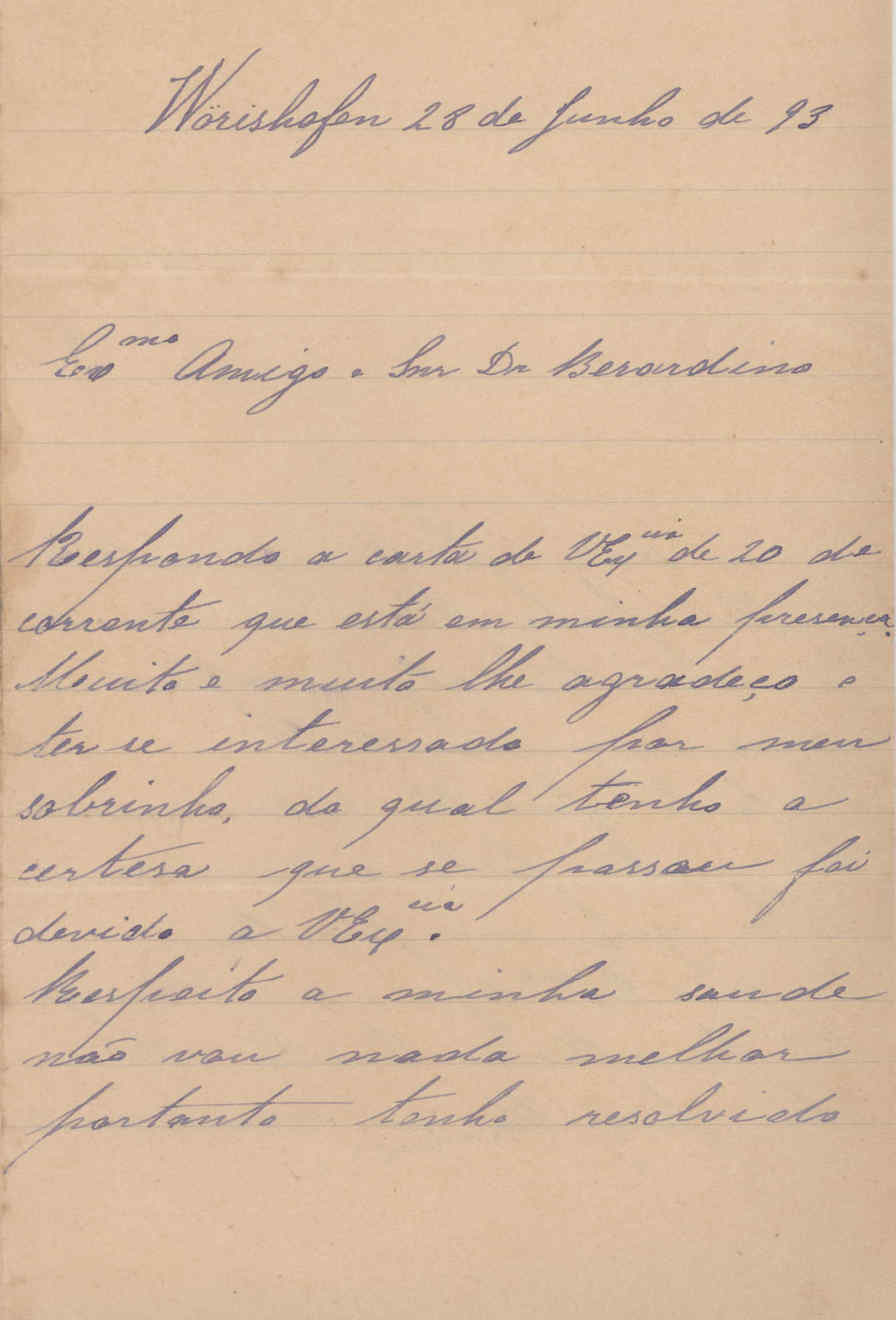 Wörishofen 28 de Junho de 93
Exmo Amigo e Snr Dr Berardino
Respondo a carta de VExcia de 20 do
corrente que está em minha presença.
Muito e muito lhe agradeço o
ter se interessado por meu
sobrinho, do qual tenho a
certesa que se passou foi
devido a VExcia.
Respeito a minha saude
não vou nada melhor
portanto tenho resolvido